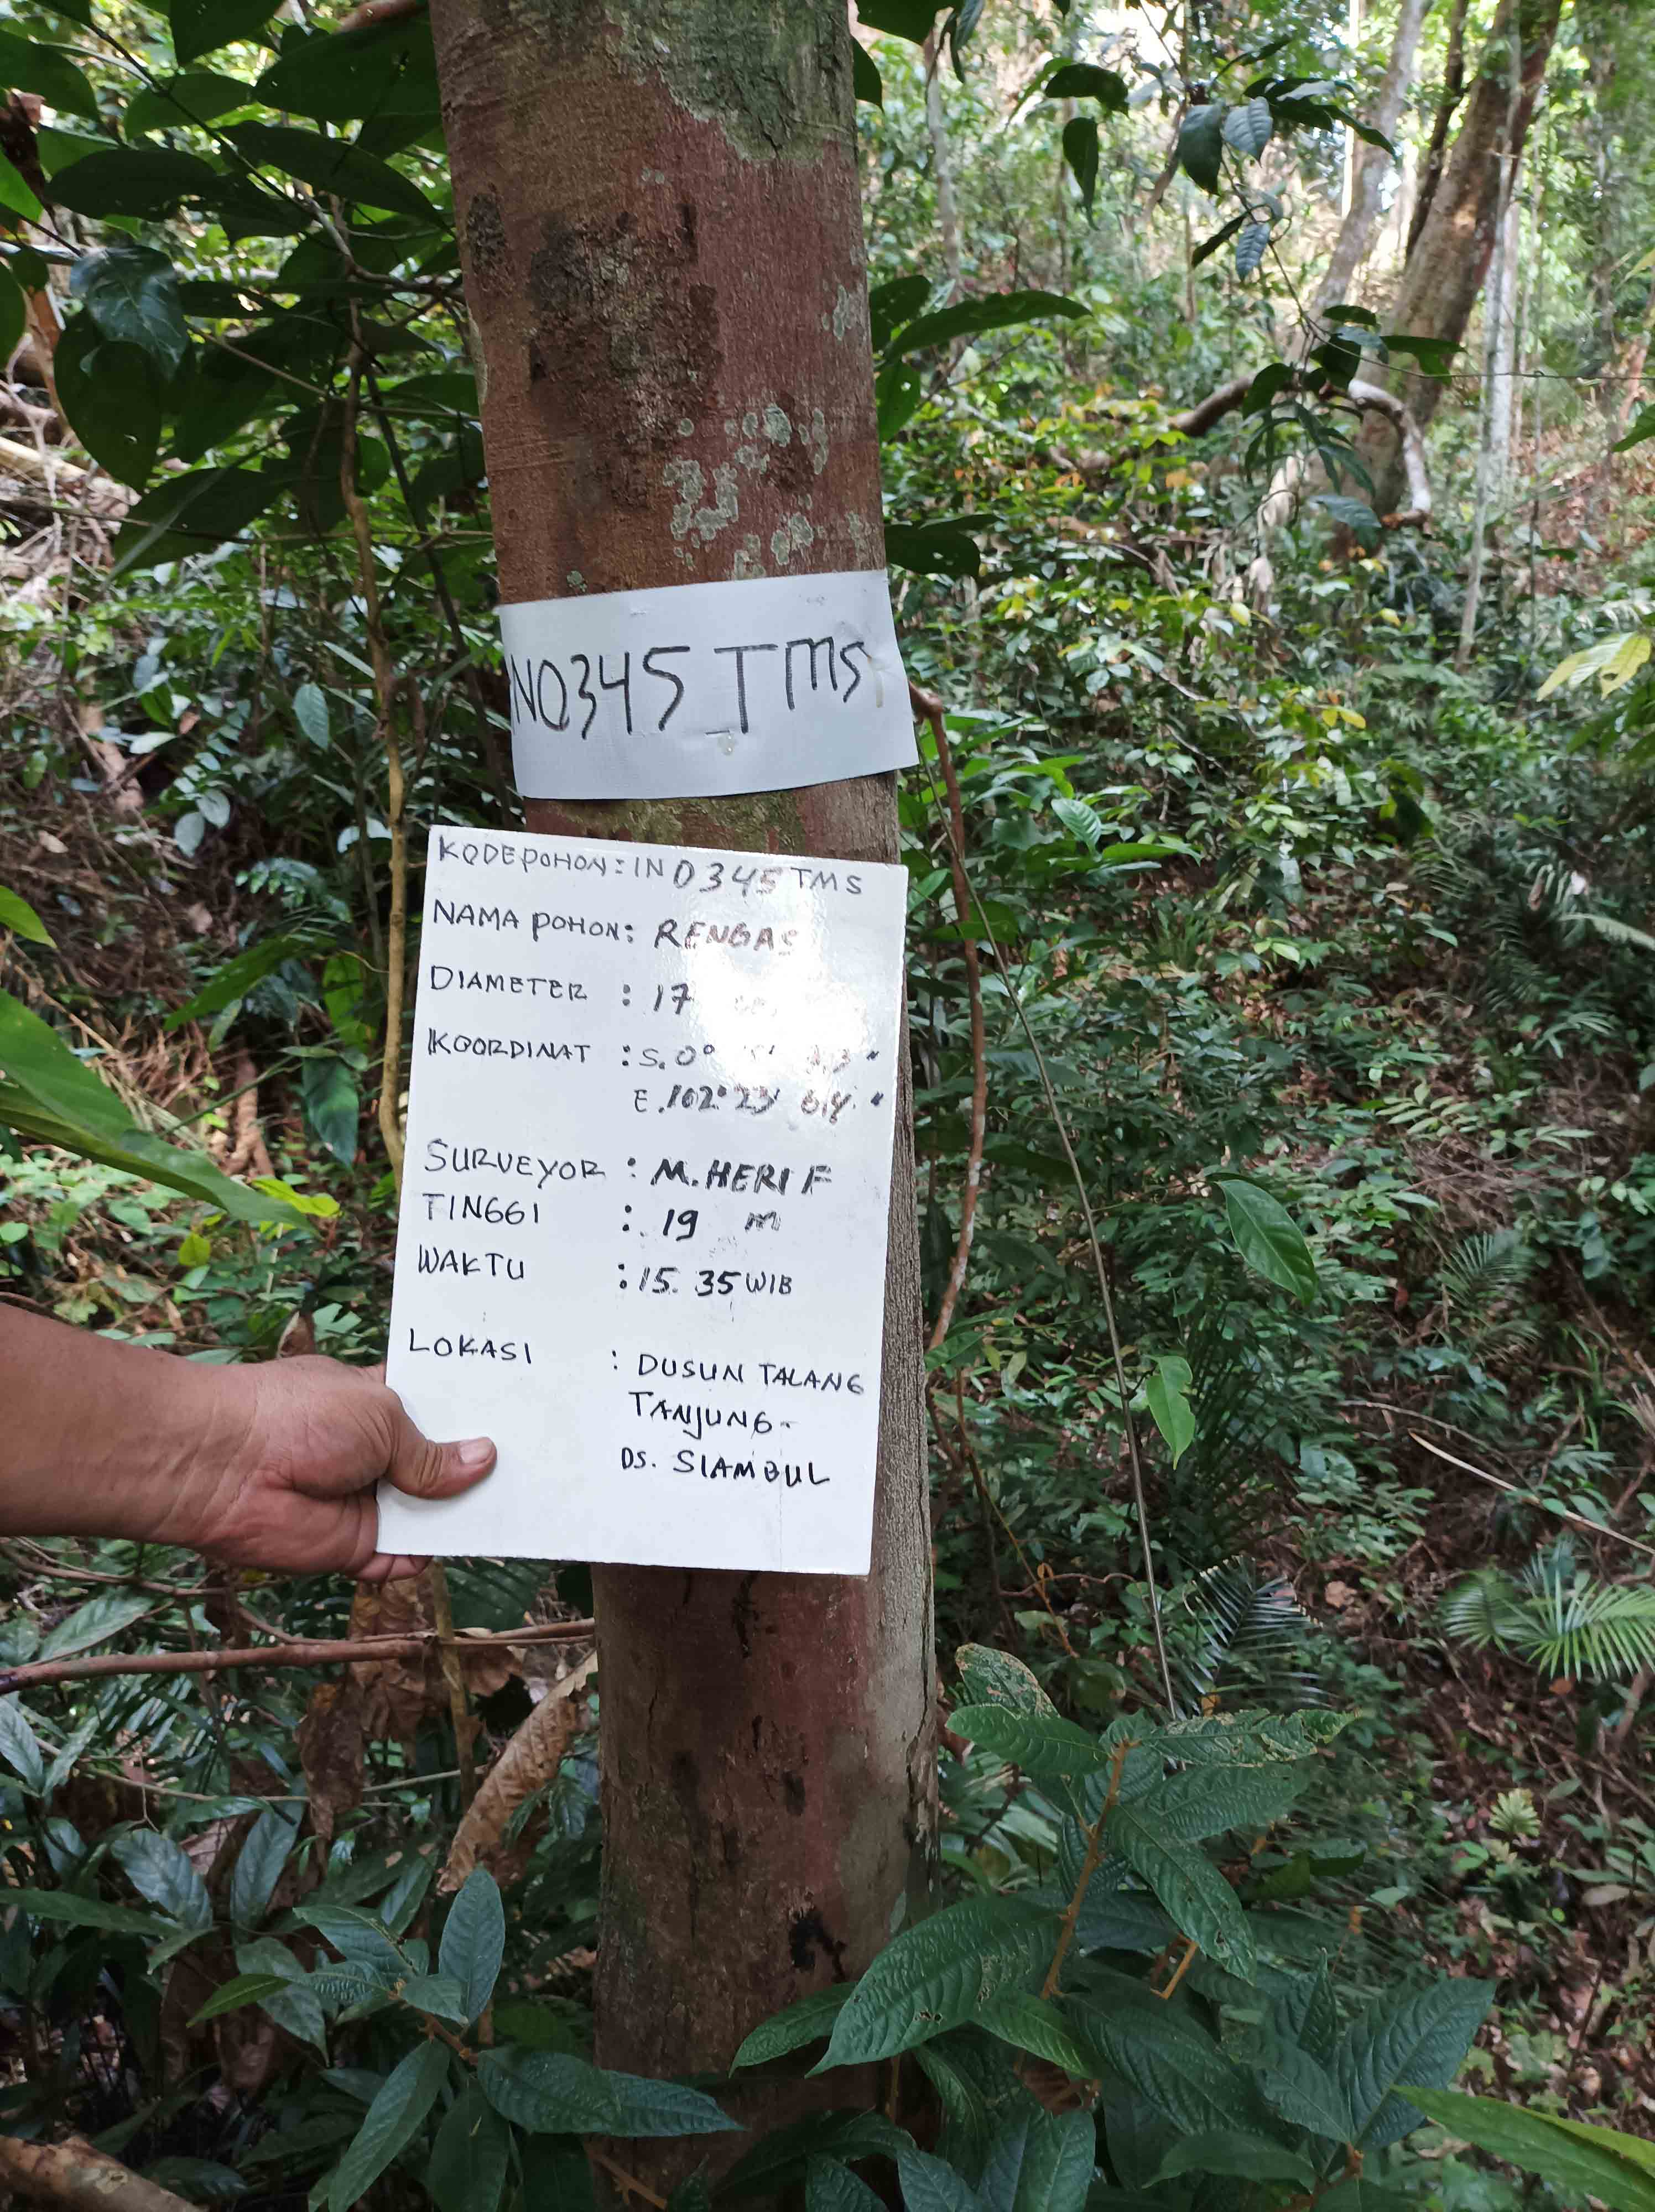 IN0345 TMS
KODE POHON: IN 0345 TMS
NAMA POHON: RENGAS
DIAMETER : 17
KOORDINAT : S. 0°
E. 102° 23'
SURVEYOR : M. HERI F
TINGGI : 19 M
WAKTU : 15. 35 WIB
LOKASI : DUSUN TALANG
TANJUNG-
DS. SIAMBUL